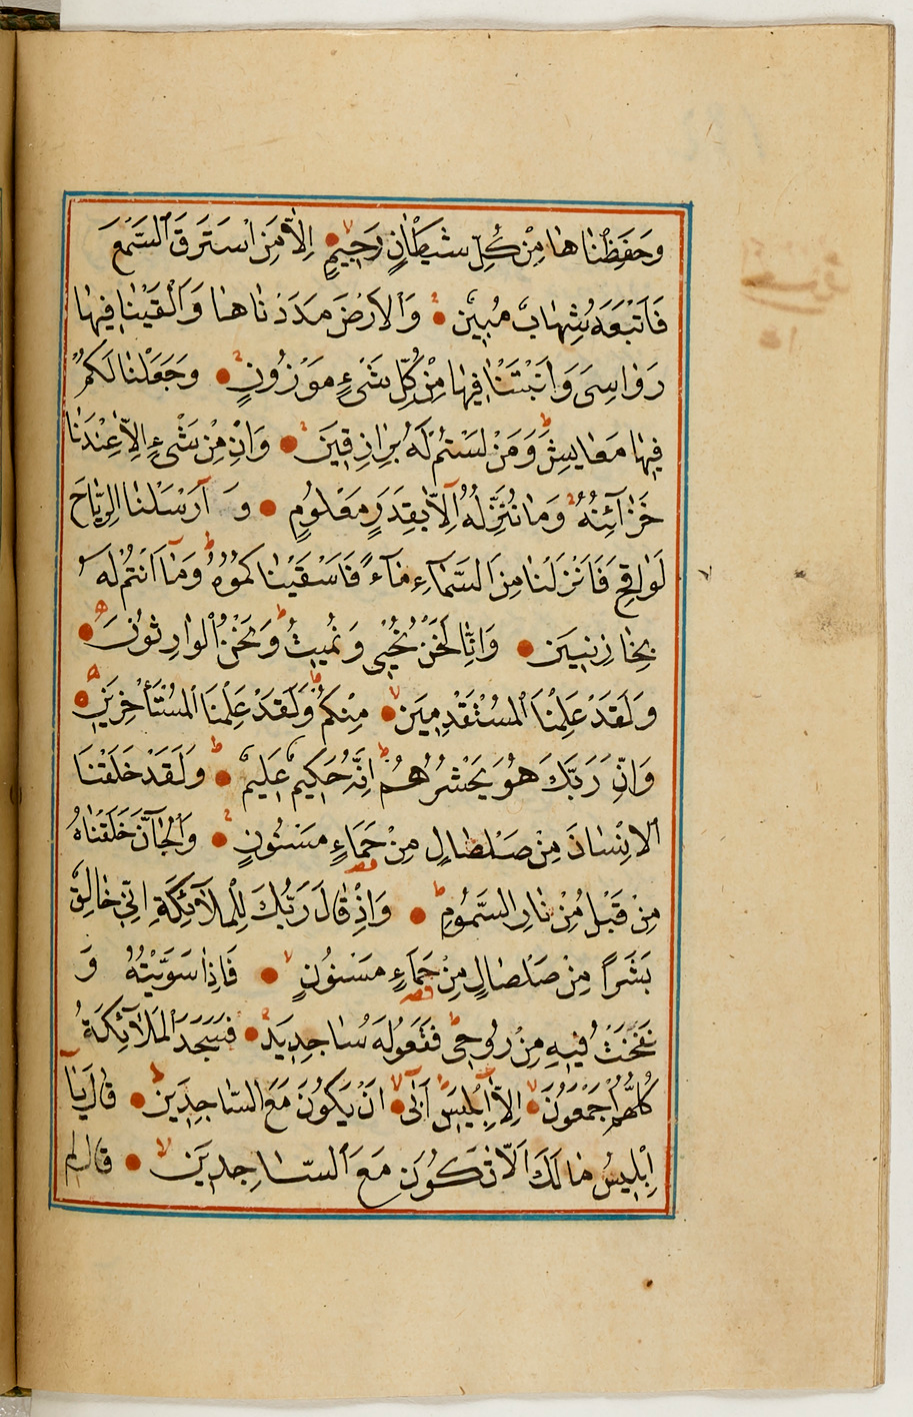 وَحَفِظْنَاهَا مِنْ كُلِّ شَيْطَانٍ رَجِيمٍ اِلاَّ مَنِ اسْتَرَقَ السَّمْعَ
فَاَتْبَعَهُ شِهَابٌ مُبِينٌ وَالْاَرْضَ مَدَدْنَاهَا وَاَلْقَيْنَا فِيهَا
رَوَاسِىَ وَاَنْبَتْنَا فِيهَا مِنْ كُلِّ شَىْءٍ مَوْزُونٍ وَجَعَلْنَا لَكُمْ
فِيهَا مَعَايِشَ وَمَنْ لَسْتُمْ لَهُ بِرَازِقِينَ وَاِنْ مِنْ شَىْءٍ اِلاَّ عِنْدَنَا
خَزَآئِنُهُ وَمَا نُنَزِّلُهُ اِلاَّ بِقَدَرٍ مَعْلُومٍ وَ اَرْسَلْنَا الرِّيَاحَ
لَوَاقِحَ فَاَنْزَلْنَا مِنَ السَّمَآءِ مَآءً فَاَسْقَيْنَاكُمُوهُ وَمَآ اَنْتُمْ لَهُ
بِخَازِنِينَ وَاِنَّا لَنَحْنُ نُحْيِى وَنُمِيتُ وَنَحْنُ الْوَارِثُونَ
وَلَقَدْ عَلِمْنَا الْمُسْتَقْدِمِينَ مِنْكُمْ وَلَقَدْ عَلِمْنَا الْمُسْتَأْخِرِينَ
وَاِنَّ رَبَّكَ هُوَ يَحْشُرُهُمْ اِنَّهُ حَكِيمٌ عَلِيمٌ وَلَقَدْ خَلَقْنَا
الْاِنْسَانَ مِنْ صَلْصَالٍ مِنْ حَمَاءٍ مَسْنُونٍ وَالْجَآنَّ خَلَقْنَاهُ
مِنْ قَبْلُ مِنْ نَارِ السَّمُومِ وَاِذْ قَالَ رَبُّكَ لِلْمَلَآئِكَةِ اِنِّى خَالِقٌ
بَشَرًا مِنْ صَلْصَالٍ مِنْ حَمَاءٍ مَسْنُونٍ فَاِذَا سَوَّيْتُهُ وَ
نَفَخْتُ فِيهِ مِنْ رُوحِى فَقَعُوا لَهُ سَاجِدِينَ فَسَجَدَ الْمَلَآئِكَةُ
كُلُّهُمْ اَجْمَعُونَ اِلاَّ اِبْلِيسَ اَبٰىٓ اَنْ يَكُونَ مَعَ السَّاجِدِينَ قَالَ يَآ
اِبْلِيسُ مَالَكَ اَلاَّ تَكُونَ مَعَ السَّاجِدِينَ قَالَ لَمْ